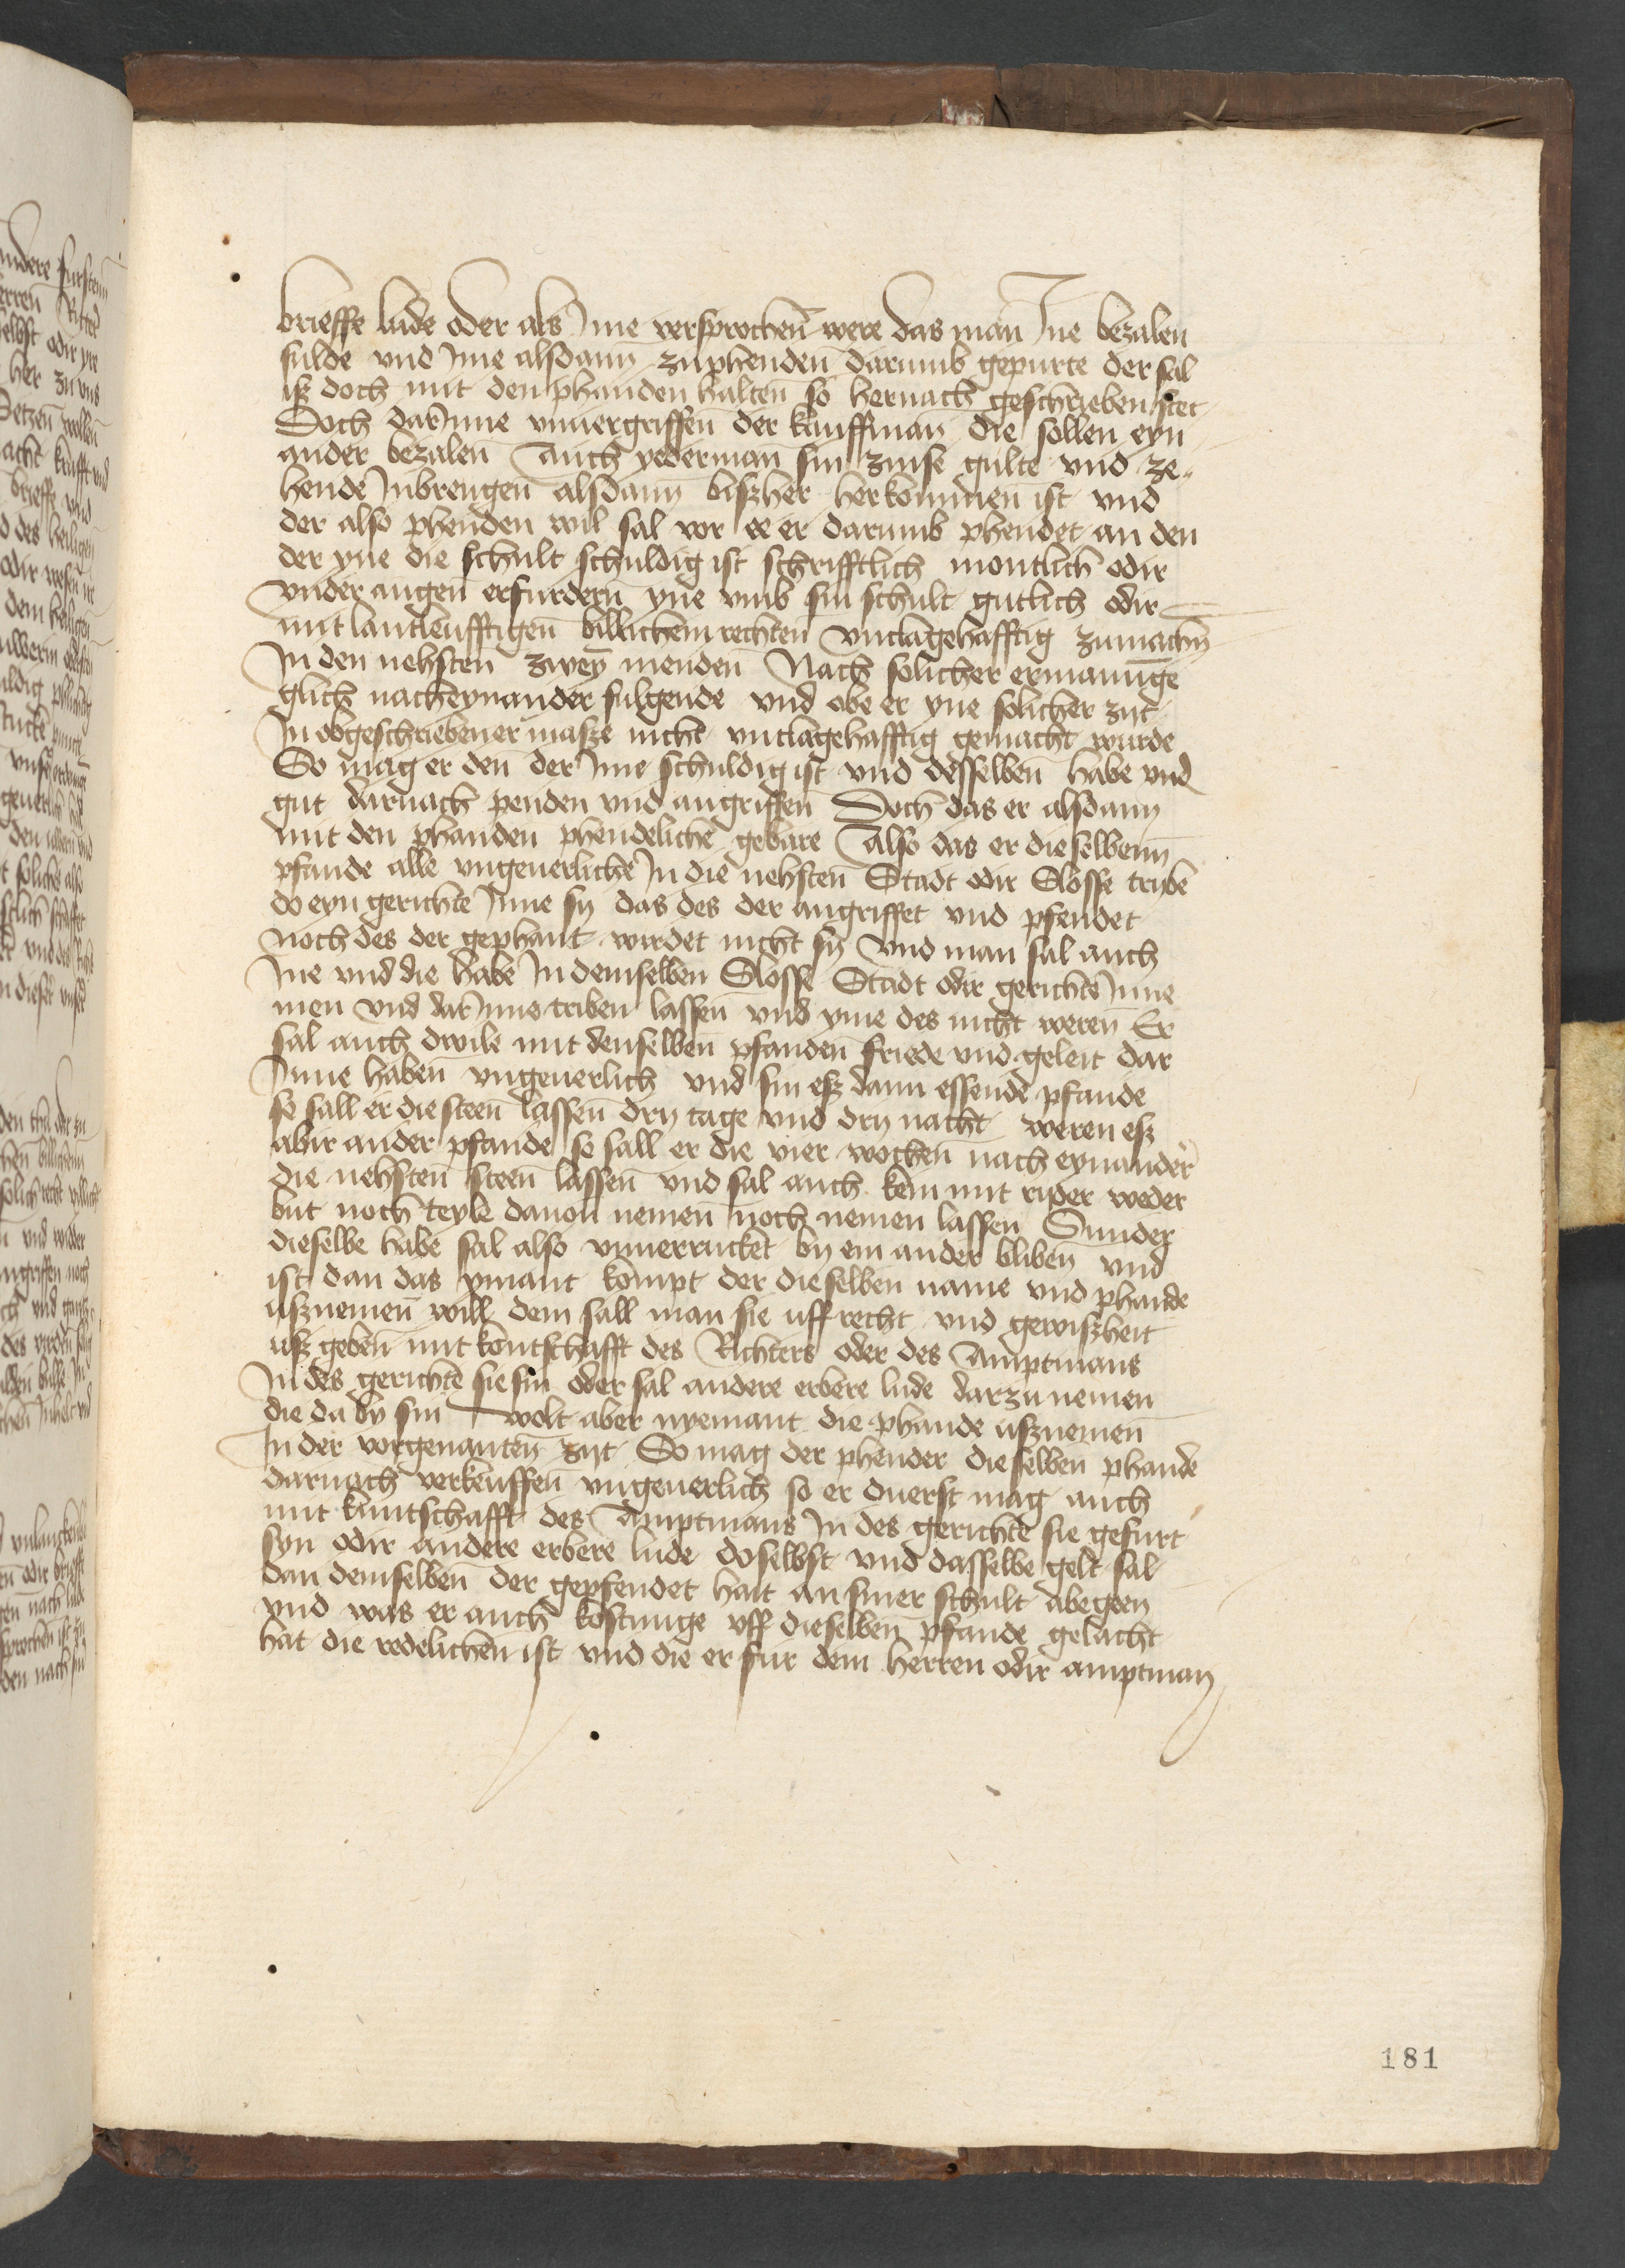 brieffe lude oder als Ime versprochen were das man Ine bezalen
sulde vnd Ime alsdann zuphenden darumb gepurte der sal
isz doch mit den phanden halten so hernach geschrieben stet
Doch darInne vnuergriffen der kauffman die sollen eyn
ander bezalen Auch yederman sin zinse gulte vnd ze„
hende Inbrengen alsdann biszher herkommen ist vnd
der also phenden wil sal vor ee er darumb phendet an den
der yne die schult schuldig ist schrifftlich montlich odir
vnder augen erfurdern yne vmb sin schult gutlich odir
mit lantleufftigen billichem rechten vnclagehafftig zumachen
In den nehsten zweyn menden Nach solicher ermanunge
glich nacheynander fulgende vnd obe er yne solicher zyt
In obgeschriebener masze nicht vnclagehafftig gemacht wurde
So mag er den der Ime schuldig ist vnd desselben habe vnd
gut darnach penden vnd angriffen Doch das er alsdann
mit den phanden phendeliche gebare Also das er dieselbenn
pfande alle vngeuerliche In die nehsten Stadt odir Slosse tryben
do eyn gerichte Inne sy das des der angriffet vnd pfendet
noch des der gephant wirdet nicht sy vnd man sal auch
Ine vnd die habe In demselben Slosse Stadt odir gerichte Inne
men vnd dar Inne triben lassen vnd yme des nicht weren Er
sal auch dwile mit denselben pfanden friede vnd geleit dar
Inne haben vngeuerlich vnd sin esz dann essende pfande
so sall er die steen lassen dry tage vnd dry nacht weren esz
abir ander pfande so sall er die vier wochen nach eynander
die nehsten steen lassen vnd sal auch kein mit ryder weder
but noch teyle dauon nemen noch nemen lassen Sunder
dieselbe habe sal also vnuerrucket by ein ander bliben vnd
ist dan das ymant kompt der dieselben name vnd phande
usznemen will dem sall man sie uff recht vnd gewiszheit
usz geben mit kontschafft des Richters oder des Amptmans
In des gerichte sie sin oder sal andere erbere lude darzu nemen
die da by sin wolt aber nyemant die phande usznemen
In der vorgenanten zyt So mag der phender dieselben phande
darnach verkeuffen vngeuerlich so er duerst mag auch
mit kuntschafft des Amptmans In des gerichte sie gefurt
syn odir andere erbere lude doselbst vnd dasselbe gelt sal
dan demselben der gepfendet hait an siner schult abegeen
vnd was er auch kostunge vff dieselben pfande gelacht
hat die redelichen ist vnd die er fur dem herren odir amptman
181